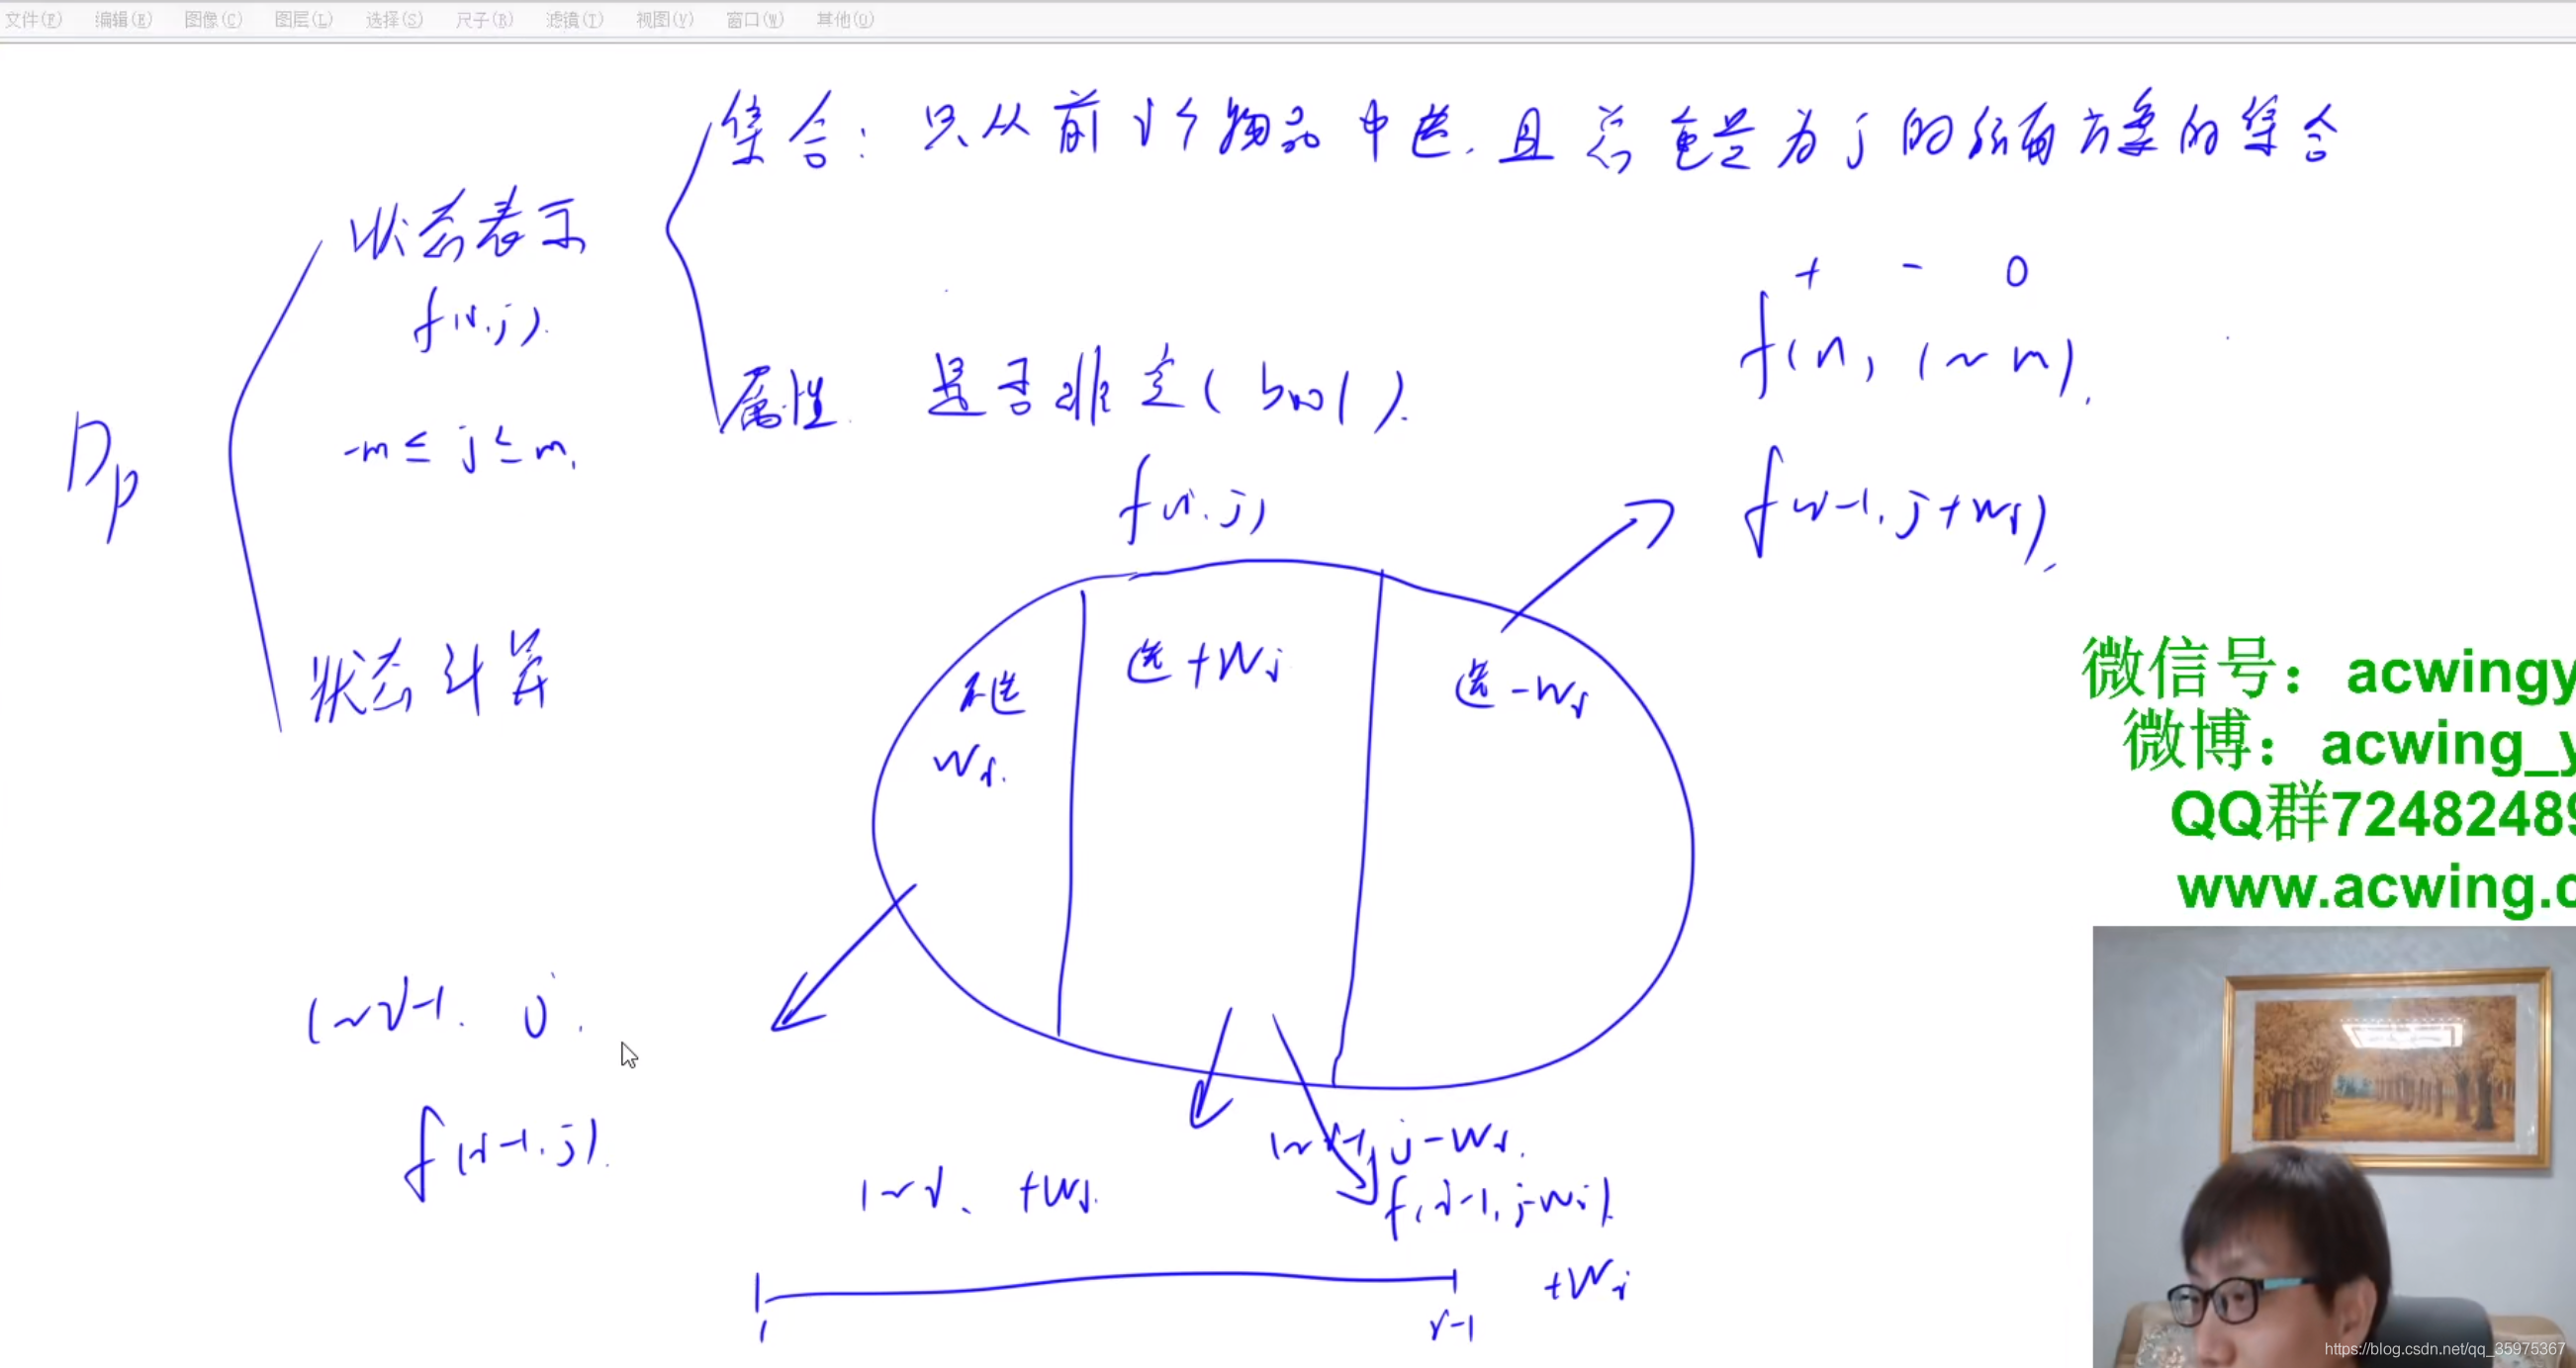 文件(F) 编辑(E) 图像(C) 图层(L) 选择(S) 尺子(R) 滤镜(T) 视图(V) 窗口(W) 其他(O)
集合：只从前i个物品中选，且总重量为j的所有方案的集合
状态表示
f(i,j).
-m ≤ j ≤ m,
属性. 是否非空(bool).
+ - 0
f(n, 1~m),
Dp
f(i,j)
f(i-1, j+wi),
不选
wi.
选+wi
选-wi
状态计算
微信号：acwingy
微博：acwing_y
QQ群72482489
www.acwing.c
1~i-1. j.
f(i-1,j).
1~i-1, j-wi.
1~i、+wi.
f(i-1,j-wi).
+wi
1
i-1
https://blog.csdn.net/qq_35975367